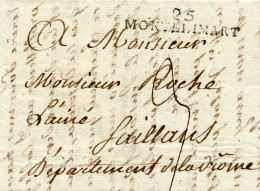 25
MONTELIMART
A Monsieur
Monsieur Roche
L'ainé
Saillans
Département de la Drôme